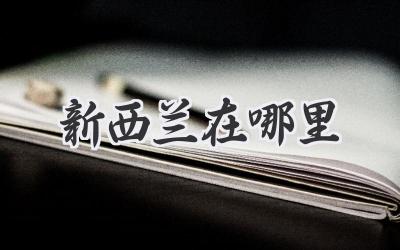 新西兰在哪里